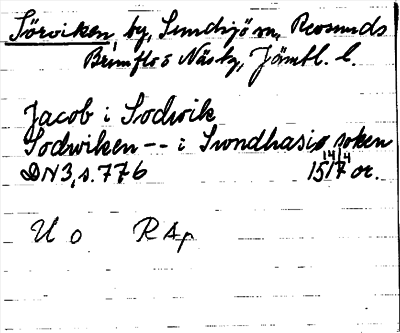 Sörviken, by, Sundsjö sn, Revsunds
Brunflo o Näsby, Jämtl. l.
Jacob i Sodwik
Sodwiken -- i Swndhasiø soken
DN3, s. 776 15 14/4 17 or.
U o RAp